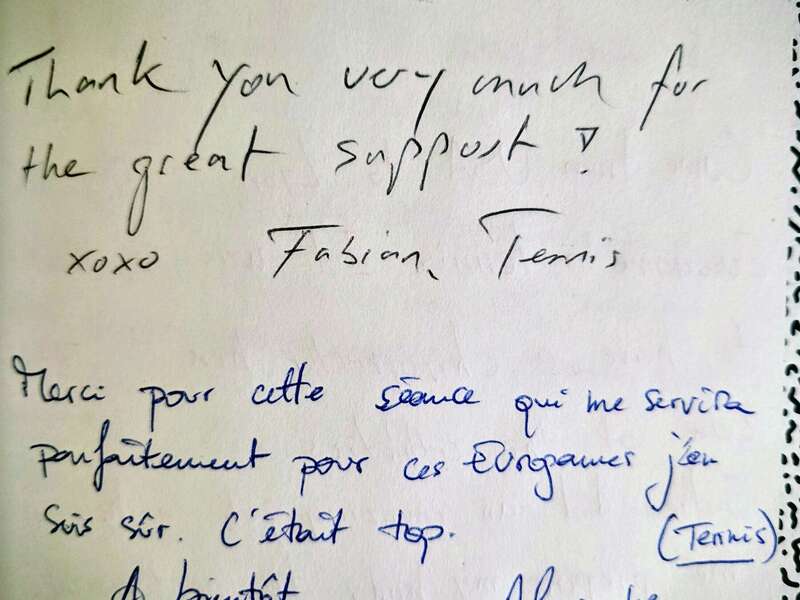 Thank you very much for
the great support!
xoxo Fabian, Tennis
Merci pour cette séance qui me servira
parfaitement pour ces Eurogames j'en
suis sûr. C'était top. (Tennis)
A bientôt